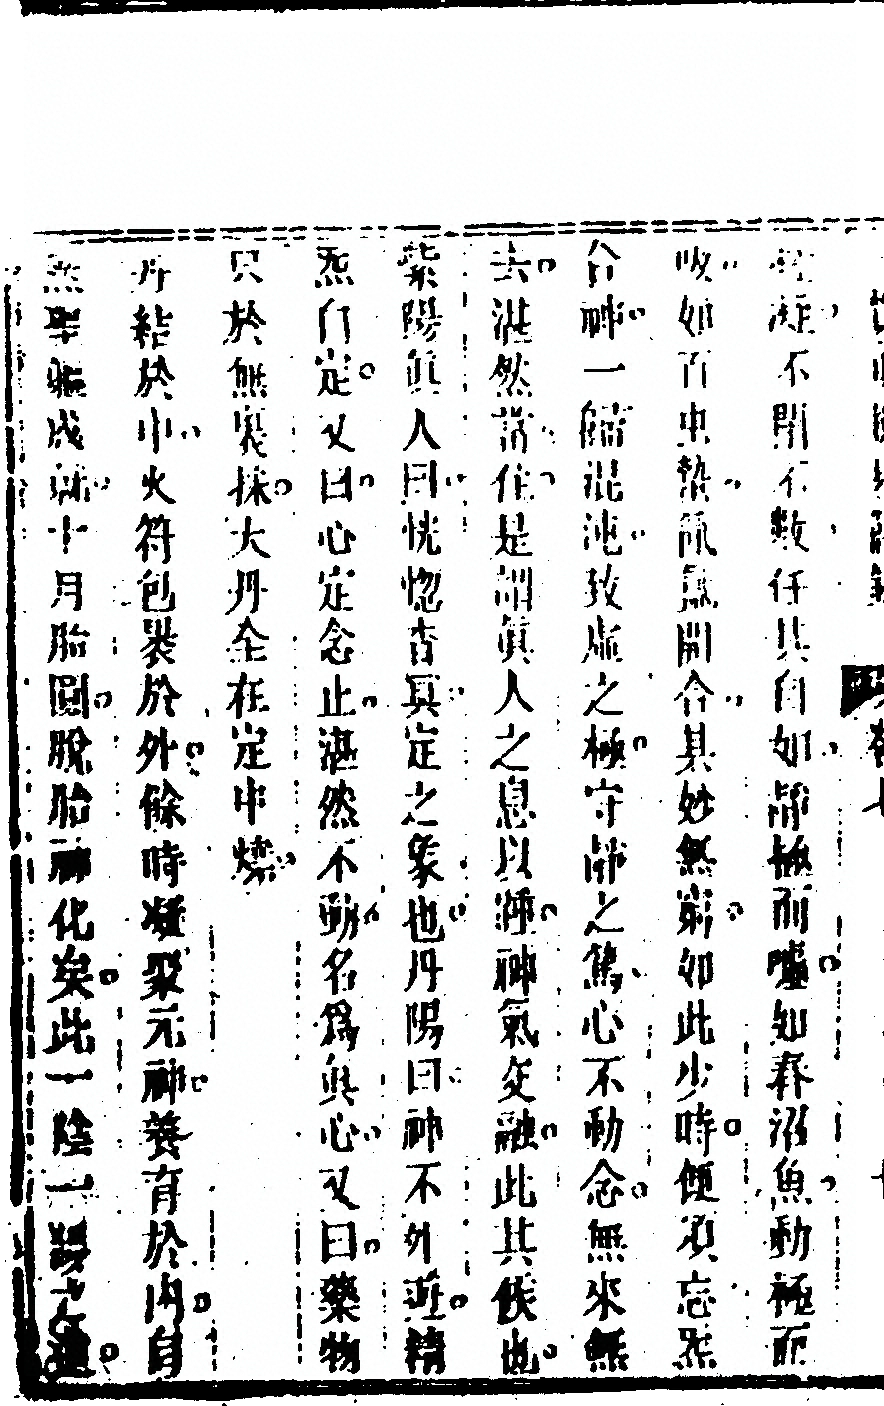 凝不閉不數任其自如靜極而噓如春沼魚動極而
吸如百虫蟄氤氳開合其妙無窮如此少時便須忘炁
合神一歸混沌致虛之極守靜之篤心不動念無來無
去湛然常住是謂真人之息以踵神氣交融此其候也
紫陽真人曰恍惚杳冥定之象也丹陽曰神不外遊精
炁自定又曰心定念止湛然不動名爲真心又曰藥物
只於無裏採大丹全在定中燒
丹結於中火符包裹於外餘時凝聚元神養育於內自
然聖軀成就十月胎圓脫胎神化矣此一陰一陽之道